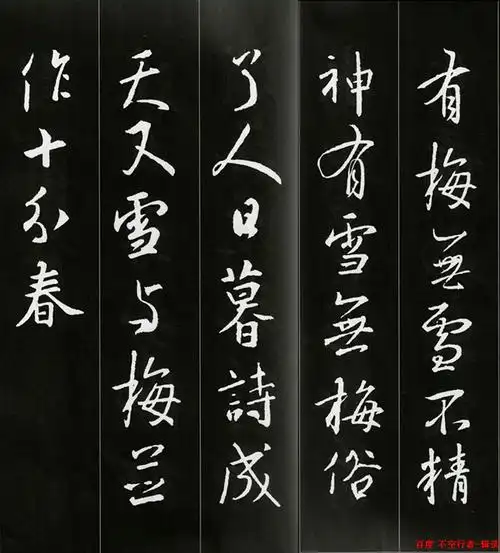 有梅無雪不精
神有雪無梅俗
了人日暮詩成
天又雪与梅並
作十分春
百度 不空行者